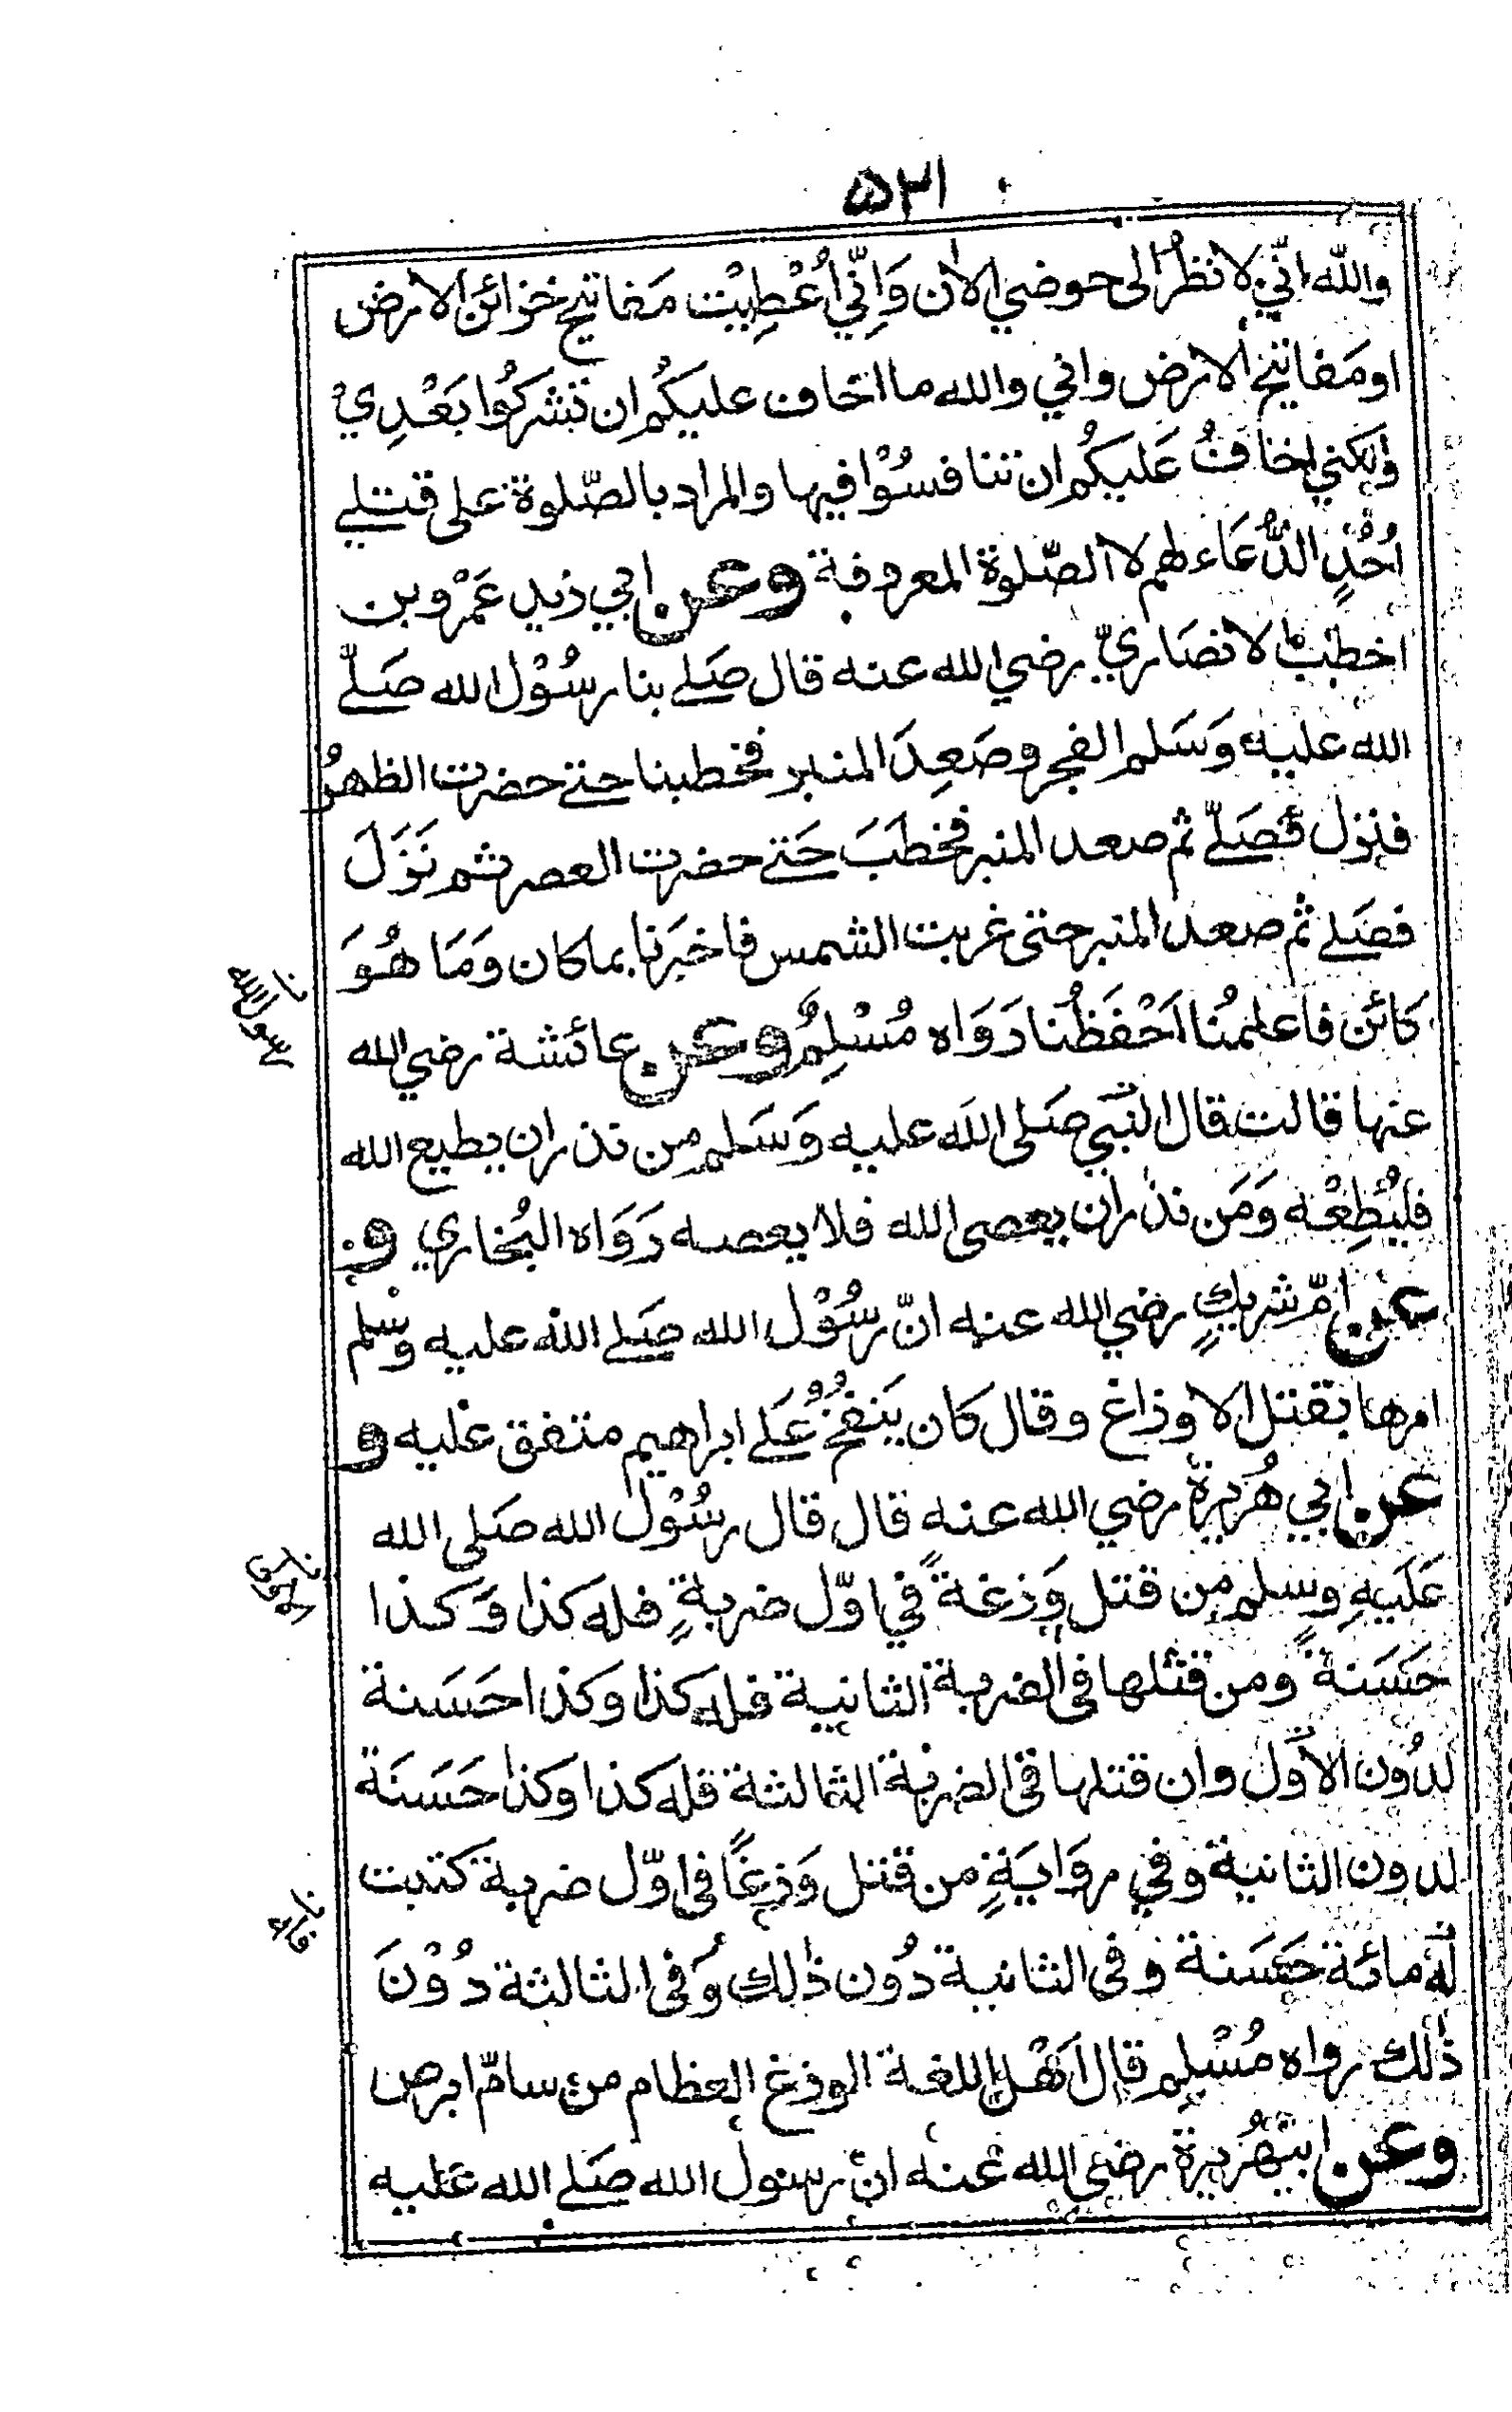 ٥٣١
والله انّي لانظرُ الى حوضي الاٰن وَاِنّي اُعْطِيْت مَفاتيح خزائن الارض
او مَفاتيح الارض واني والله ما اخاف عليكُم ان تشركُوا بَعْدِيْ
ولكني اخافُ عَليكُم ان تنافسُوْا فيها والمراد بالصّلوة على قتلے
اُحُدٍ الدُّعَاء لهم لا الصّلوة المعروفة وعن ابي زيد عَمْرو بن
اخطب الانصَاريّ رضي الله عنه قال صَلے بنا رسُوْل الله صَلّے
الله عليه وَسَلم الفجر وصَعِدَ المنبر فخطبنا حتے حضرت الظهرُ
فنزل فصَلّے ثم صعد المنبر فخطَبَ حَتے حضرت العصر ثم نَزَلَ
فصَلے ثم صعد المنبر حتى غربت الشمس فاخبَرنا بما كان وَمَا هُوَ
كائن فاعلمُنا اَحْفَظُنا رَوَاه مُسْلِمُ وعن عائشة رضي الله
عنها قالت قال النّبي صَلى الله عليه وَسَلم من نذر ان يطيع الله
فليُطِعْه وَمَن نذر ان يعصى الله فلا يعصه رَوَاه البُخاري و
عن امّ شريكٍ رضي الله عنه انّ رسُوْل الله صَلے الله عليه وسلم
امرها بقتل الاوزاغ وقال كان يَنفخُ عَلے ابراهيم متفق عليه و
عن ابي هُريرة رضي الله عنه قال قال رسُوْل الله صَلى الله
عَلَيهِ وسلم من قتل وَزغةً في اوّل ضربةٍ فله كذا وَكذا
حَسَنةً ومن قتلها في الضربة الثانية فله كذا وكذا حَسَنة
لدُون الاوّل وان قتلها في الضربة الثالثة فله كذا وكذا حَسَنَة
لدون الثانية وفي روَايَةٍ من قتل وَزغًا في اوّل ضربة كتبت
لهٗ مائة حَسَنة وفي الثانية دُون ذٰلك وَفي الثالثة دُوْنَ
ذٰلك رواه مُسْلِم قال اَهْل اللغة الوزغ العظام من سامّ ابرص
وعن ابيهُريرة رضي الله عنه انّ رسول الله صَلے الله عَليه
رسول الله